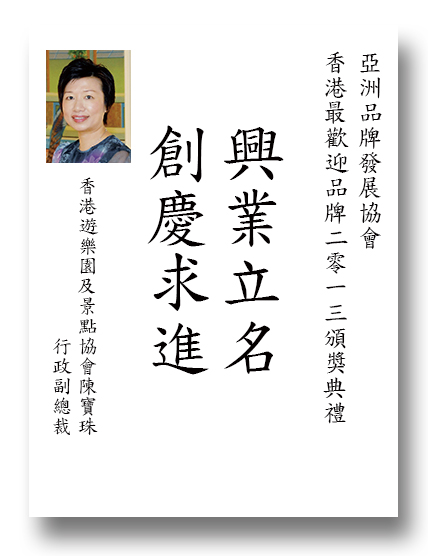 亞洲品牌發展協會
香港最歡迎品牌二零一三頒獎典禮
興業立名
創慶求進
香港遊樂園及景點協會陳寶珠
行政副總裁